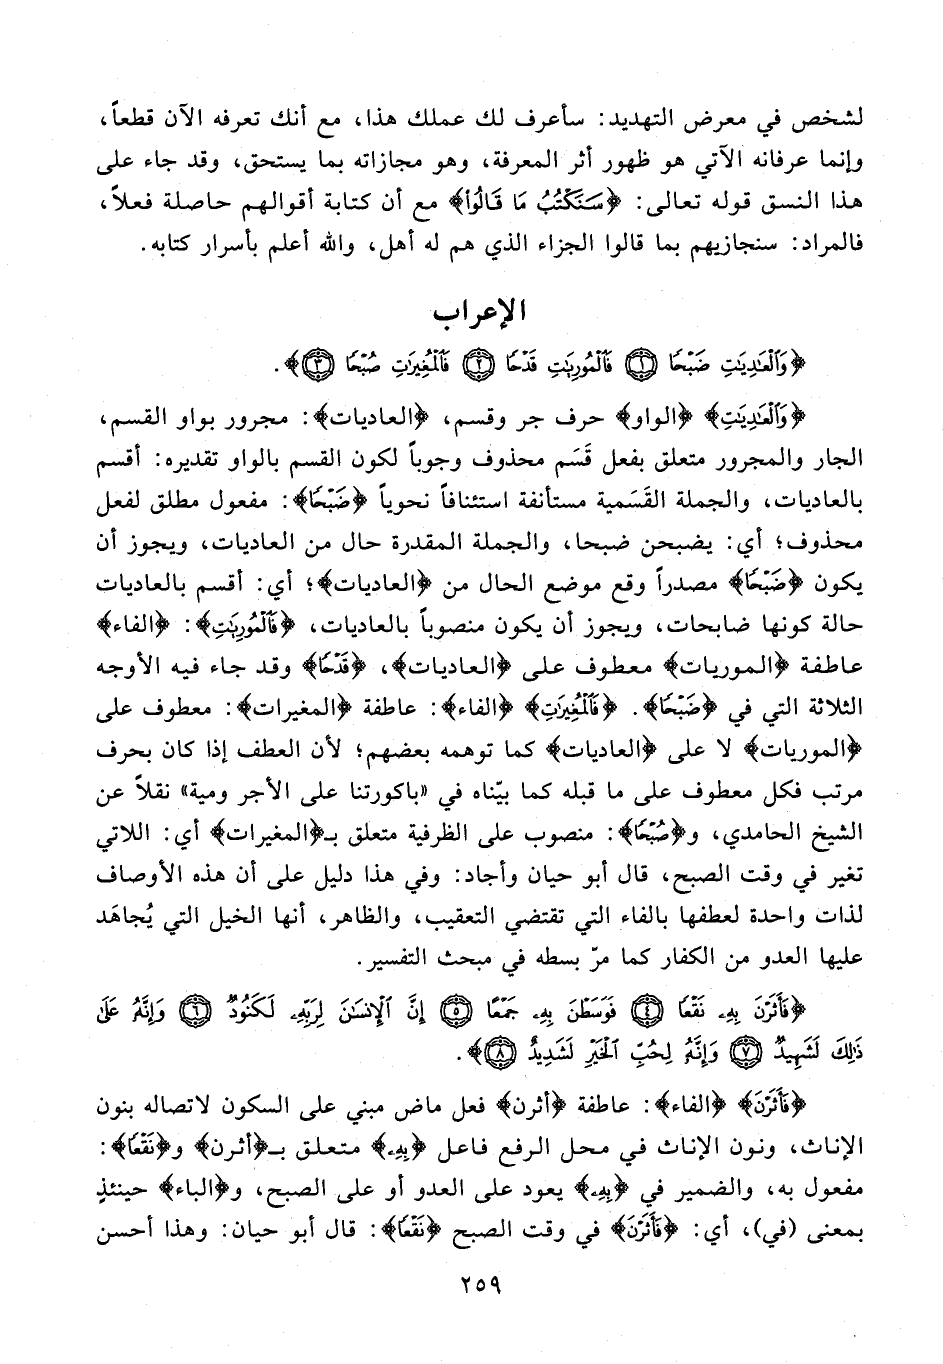 لشخص في معرض التهديد: سأعرف لك عملك هذا، مع أنك تعرفه الآن قطعاً،
وإنما عرفانه الآتي هو ظهور أثر المعرفة، وهو مجازاته بما يستحق، وقد جاء على
هذا النسق قوله تعالى: ﴿سَنَكْتُبُ مَا قَالُوا﴾ مع أن كتابة أقوالهم حاصلة فعلاً،
فالمراد: سنجازيهم بما قالوا الجزاء الذي هم له أهل، والله أعلم بأسرار كتابه.
الإعراب
﴿وَالْعَٰدِيَٰتِ ضَبْحًا ﴿١﴾ فَالْمُورِيَٰتِ قَدْحًا ﴿٢﴾ فَالْمُغِيرَٰتِ صُبْحًا ﴿٣﴾﴾.
﴿وَالْعَٰدِيَٰتِ﴾ ﴿الواو﴾ حرف جر وقسم، ﴿العاديات﴾: مجرور بواو القسم،
الجار والمجرور متعلق بفعل قَسَم محذوف وجوباً لكون القسم بالواو تقديره: أقسم
بالعاديات، والجملة القَسَمية مستأنفة استئنافاً نحوياً ﴿ضَبْحًا﴾: مفعول مطلق لفعل
محذوف؛ أي: يضبحن ضبحا، والجملة المقدرة حال من العاديات، ويجوز أن
يكون ﴿ضَبْحًا﴾ مصدراً وقع موضع الحال من ﴿العاديات﴾؛ أي: أقسم بالعاديات
حالة كونها ضابحات، ويجوز أن يكون منصوباً بالعاديات، ﴿فَالْمُورِيَٰتِ﴾: ﴿الفاء﴾
عاطفة ﴿الموريات﴾ معطوف على ﴿العاديات﴾، ﴿قَدْحًا﴾ وقد جاء فيه الأوجه
الثلاثة التي في ﴿ضَبْحًا﴾. ﴿فَالْمُغِيرَٰتِ﴾ ﴿الفاء﴾: عاطفة ﴿المغيرات﴾: معطوف على
﴿الموريات﴾ لا على ﴿العاديات﴾ كما توهمه بعضهم؛ لأن العطف إذا كان بحرف
مرتب فكل معطوف على ما قبله كما بيّناه في «باكورتنا على الأجر ومية» نقلاً عن
الشيخ الحامدي، و﴿صُبْحًا﴾: منصوب على الظرفية متعلق بـ﴿المغيرات﴾ أي: اللاتي
تغير في وقت الصبح، قال أبو حيان وأجاد: وفي هذا دليل على أن هذه الأوصاف
لذات واحدة لعطفها بالفاء التي تقتضي التعقيب، والظاهر، أنها الخيل التي يُجاهَد
عليها العدو من الكفار كما مرّ بسطه في مبحث التفسير.
﴿فَأَثَرْنَ بِهِۦ نَقْعًا ﴿٤﴾ فَوَسَطْنَ بِهِۦ جَمْعًا ﴿٥﴾ إِنَّ الْإِنسَٰنَ لِرَبِّهِۦ لَكَنُودٌ ﴿٦﴾ وَإِنَّهُۥ عَلَىٰ
ذَٰلِكَ لَشَهِيدٌ ﴿٧﴾ وَإِنَّهُۥ لِحُبِّ الْخَيْرِ لَشَدِيدٌ ﴿٨﴾﴾.
﴿فَأَثَرْنَ﴾ ﴿الفاء﴾: عاطفة ﴿أثرن﴾ فعل ماض مبني على السكون لاتصاله بنون
الإناث، ونون الإناث في محل الرفع فاعل ﴿بِهِۦ﴾ متعلق بـ﴿أثرن﴾ و﴿نَقْعًا﴾:
مفعول به، والضمير في ﴿بِهِۦ﴾ يعود على العدو أو على الصبح، و﴿الباء﴾ حينئذٍ
بمعنى (في)، أي: ﴿فَأَثَرْنَ﴾ في وقت الصبح ﴿نَقْعًا﴾: قال أبو حيان: وهذا أحسن
٢٥٩